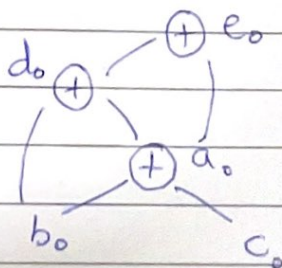 ⊕ e₀
d₀ ⊕
⊕ a₀
b₀ c₀